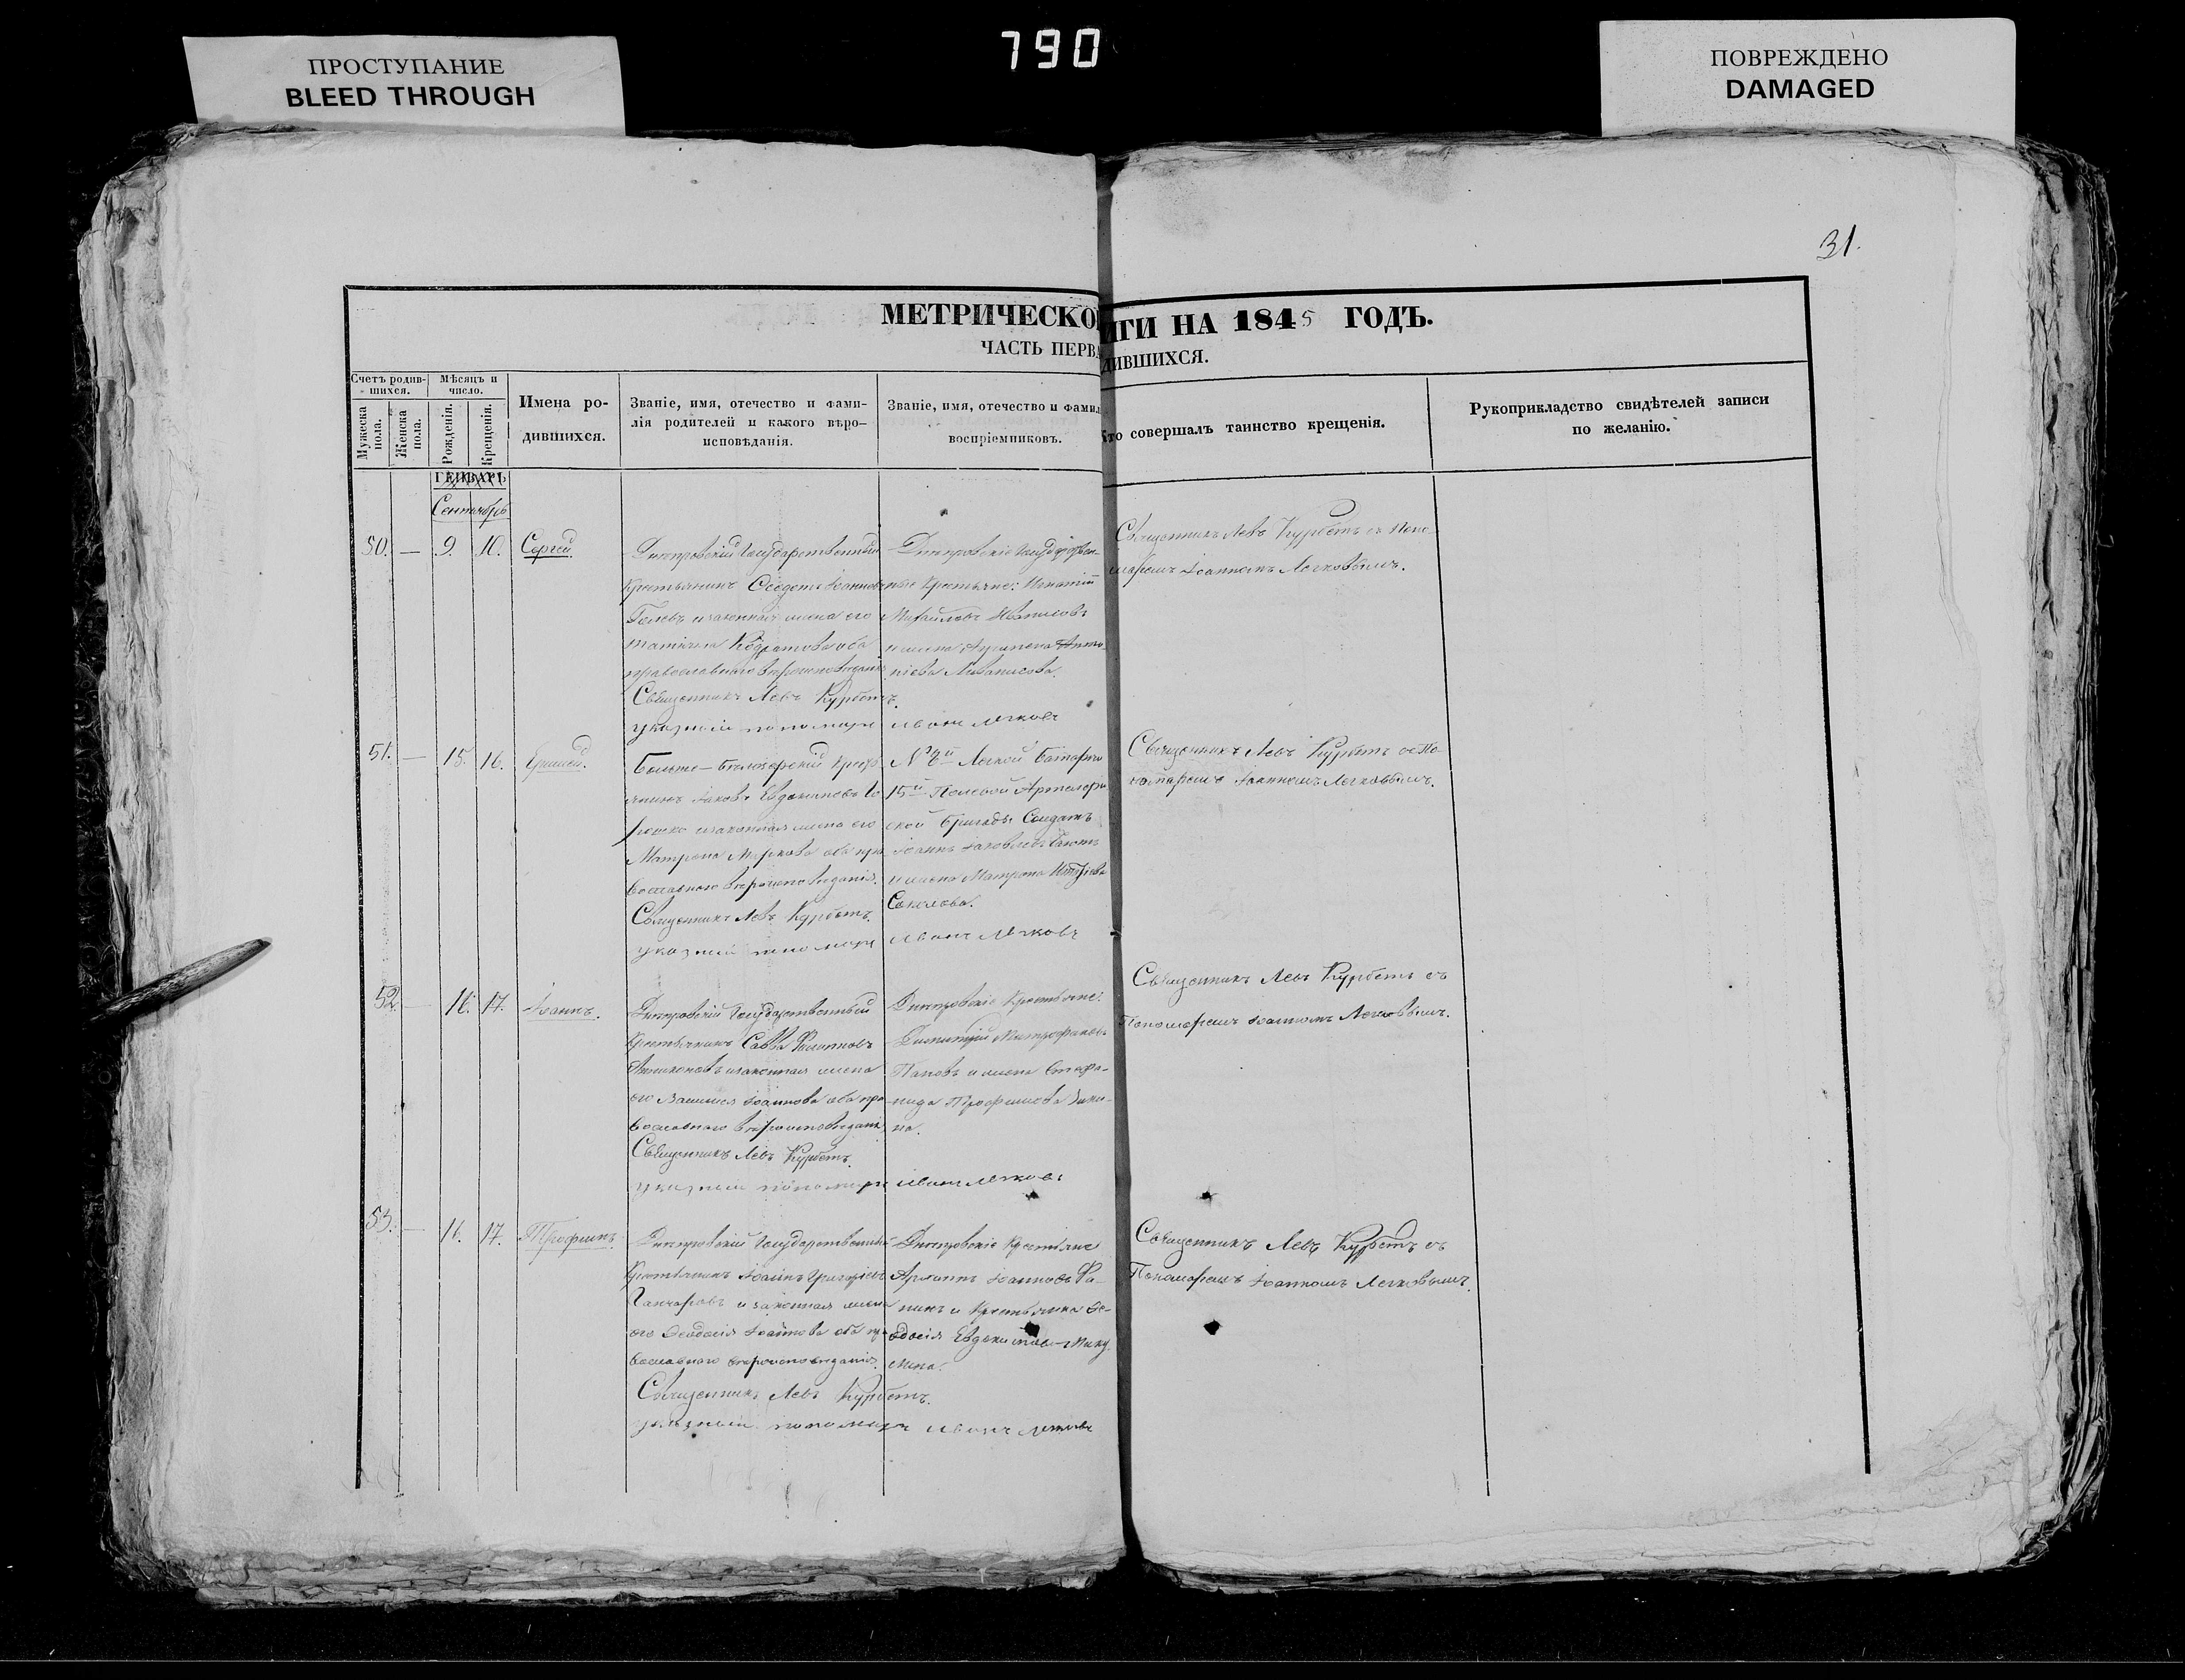 ПРОСТУПАНИЕ
BLEED THROUGH
790
ПОВРЕЖДЕНО
DAMAGED
31.
МЕТРИЧЕСКО
ИГИ НА 1845 ГОДЪ.
ЧАСТЬ ПЕРВА
ДИВШИХСЯ.
Счетъ родив-
шихся.
Мужеска
пола.
Женска
пола.
Мѣсяцъ и
число.
Рожденія.
Крещенія.
Имена ро-
дившихся.
Званіе, имя, отечество и фами-
лія родителей и какого вѣро-
исповѣданія.
Званіе, имя, отечество и фамил
воспріемниковъ.
Кто совершалъ таинство крещенія.
Рукоприкладство свидѣтелей записи
по желанію.
ГЕНВАРЬ
Сентябрь
50. — 9. 10. Сергей.
Днепровскій Государственный
Крестьянинъ Ѳеодотъ Іоанновъ
и законная жена его
Татіяна Кодратова оба
православнаго вероисповеданія
Священникъ Левъ Курбетъ.
указный пономарь Иванъ Легковъ
Днепровскіе Государствен-
ные Крестьяне: Игнатій
Михайловъ
и жена Агрипена
Священникъ Левъ Курбетъ съ Поно-
маремъ Іоанномъ Легковымъ.
51. — 15. 16.
Больше-Белозерскій Крест
янинъ Іаковъ Евдокимовъ
и законная жена его
Матрона Маркова оба пра
вославнаго вероисповеданія.
Священникъ Левъ Курбетъ.
указный пономарь Иванъ Легковъ
Легкой Батареи
15й Полевой Артилери
ской Бригады Солдатъ
Іоаннъ Іаковлевъ
и жена Матрона
Священникъ Левъ Курбетъ съ По
номаремъ Іоанномъ Легковымъ.
52. — 16. 17. Іоаннъ.
Днепровскій Государственный
Крестьянинъ Савва Филиповъ
и законная жена
его Іоаннова оба пра
вославнаго вероисповеданія
Священникъ Левъ Курбетъ.
указный пономарь Иванъ Легковъ
Днепровскіе Крестьяне:
Димитрій Митрофановъ
Пановъ и жена Стефа-
нида Трофимова
на.
Священникъ Левъ Курбетъ съ
Пономаремъ Іоанномъ Легковымъ.
53. — 16. 17. Трофимъ.
Днепровскій Государственный
Крестьянинъ Іоаннъ Григорьевъ
Ганчаровъ и законная жена
его Ѳеодосія Іоаннова оба пра
вославнаго вероисповеданія.
Священникъ Левъ Курбетъ.
указный пономарь Иванъ Легковъ
Днепровскіе Крестьяне
Іоанновъ
и Крестьянка Ѳе-
одосія Евдокимова
Священникъ Левъ Курбетъ съ
Пономаремъ Іоанномъ Легковымъ.